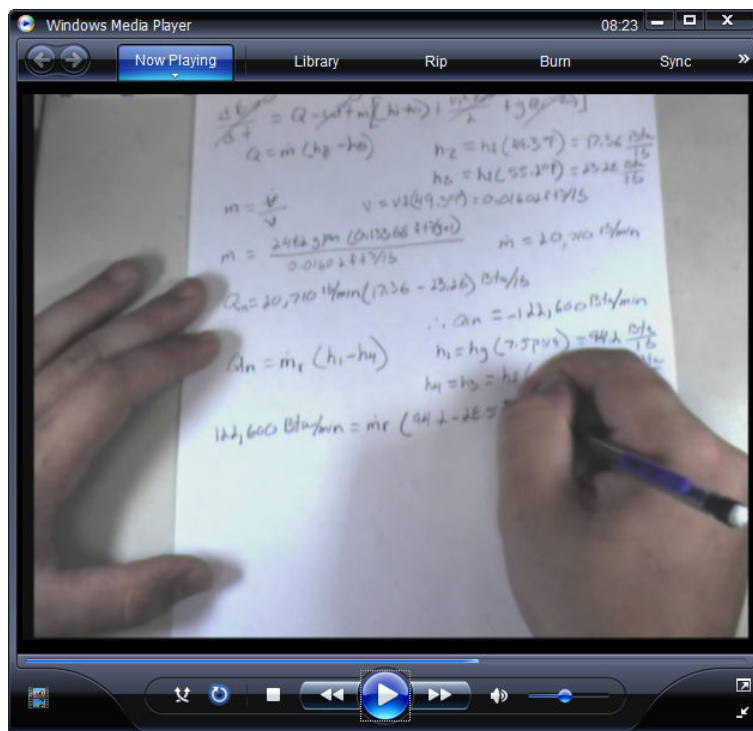 Windows Media Player 08:23
Now Playing Library Rip Burn Sync »
= Q - + ṁ[(hi + ) + /2 + g ]
Q = ṁ(h2 - h5) h2 = hf(49.3°F) = 17.36 Btu/lb
h5 = hf(55.2°F) = 23.26 Btu/lb
ṁ = V̇/v v = vf(49.3°F) = 0.01602 ft³/lb
ṁ = 2482 gpm (0.13368 ft³/gal) / 0.01602 ft³/lb ṁ = 20,710 lb/min
Qn = 20,710 lb/min (17.36 - 23.26) Btu/lb
∴ Qn = -122,600 Btu/min
Qn = ṁr (h1 - h4) h1 = hg (7.5psig) = 94.2 Btu/lb
h4 = h3 = hf(
122,600 Btu/min = ṁr (94.2 - 28.5